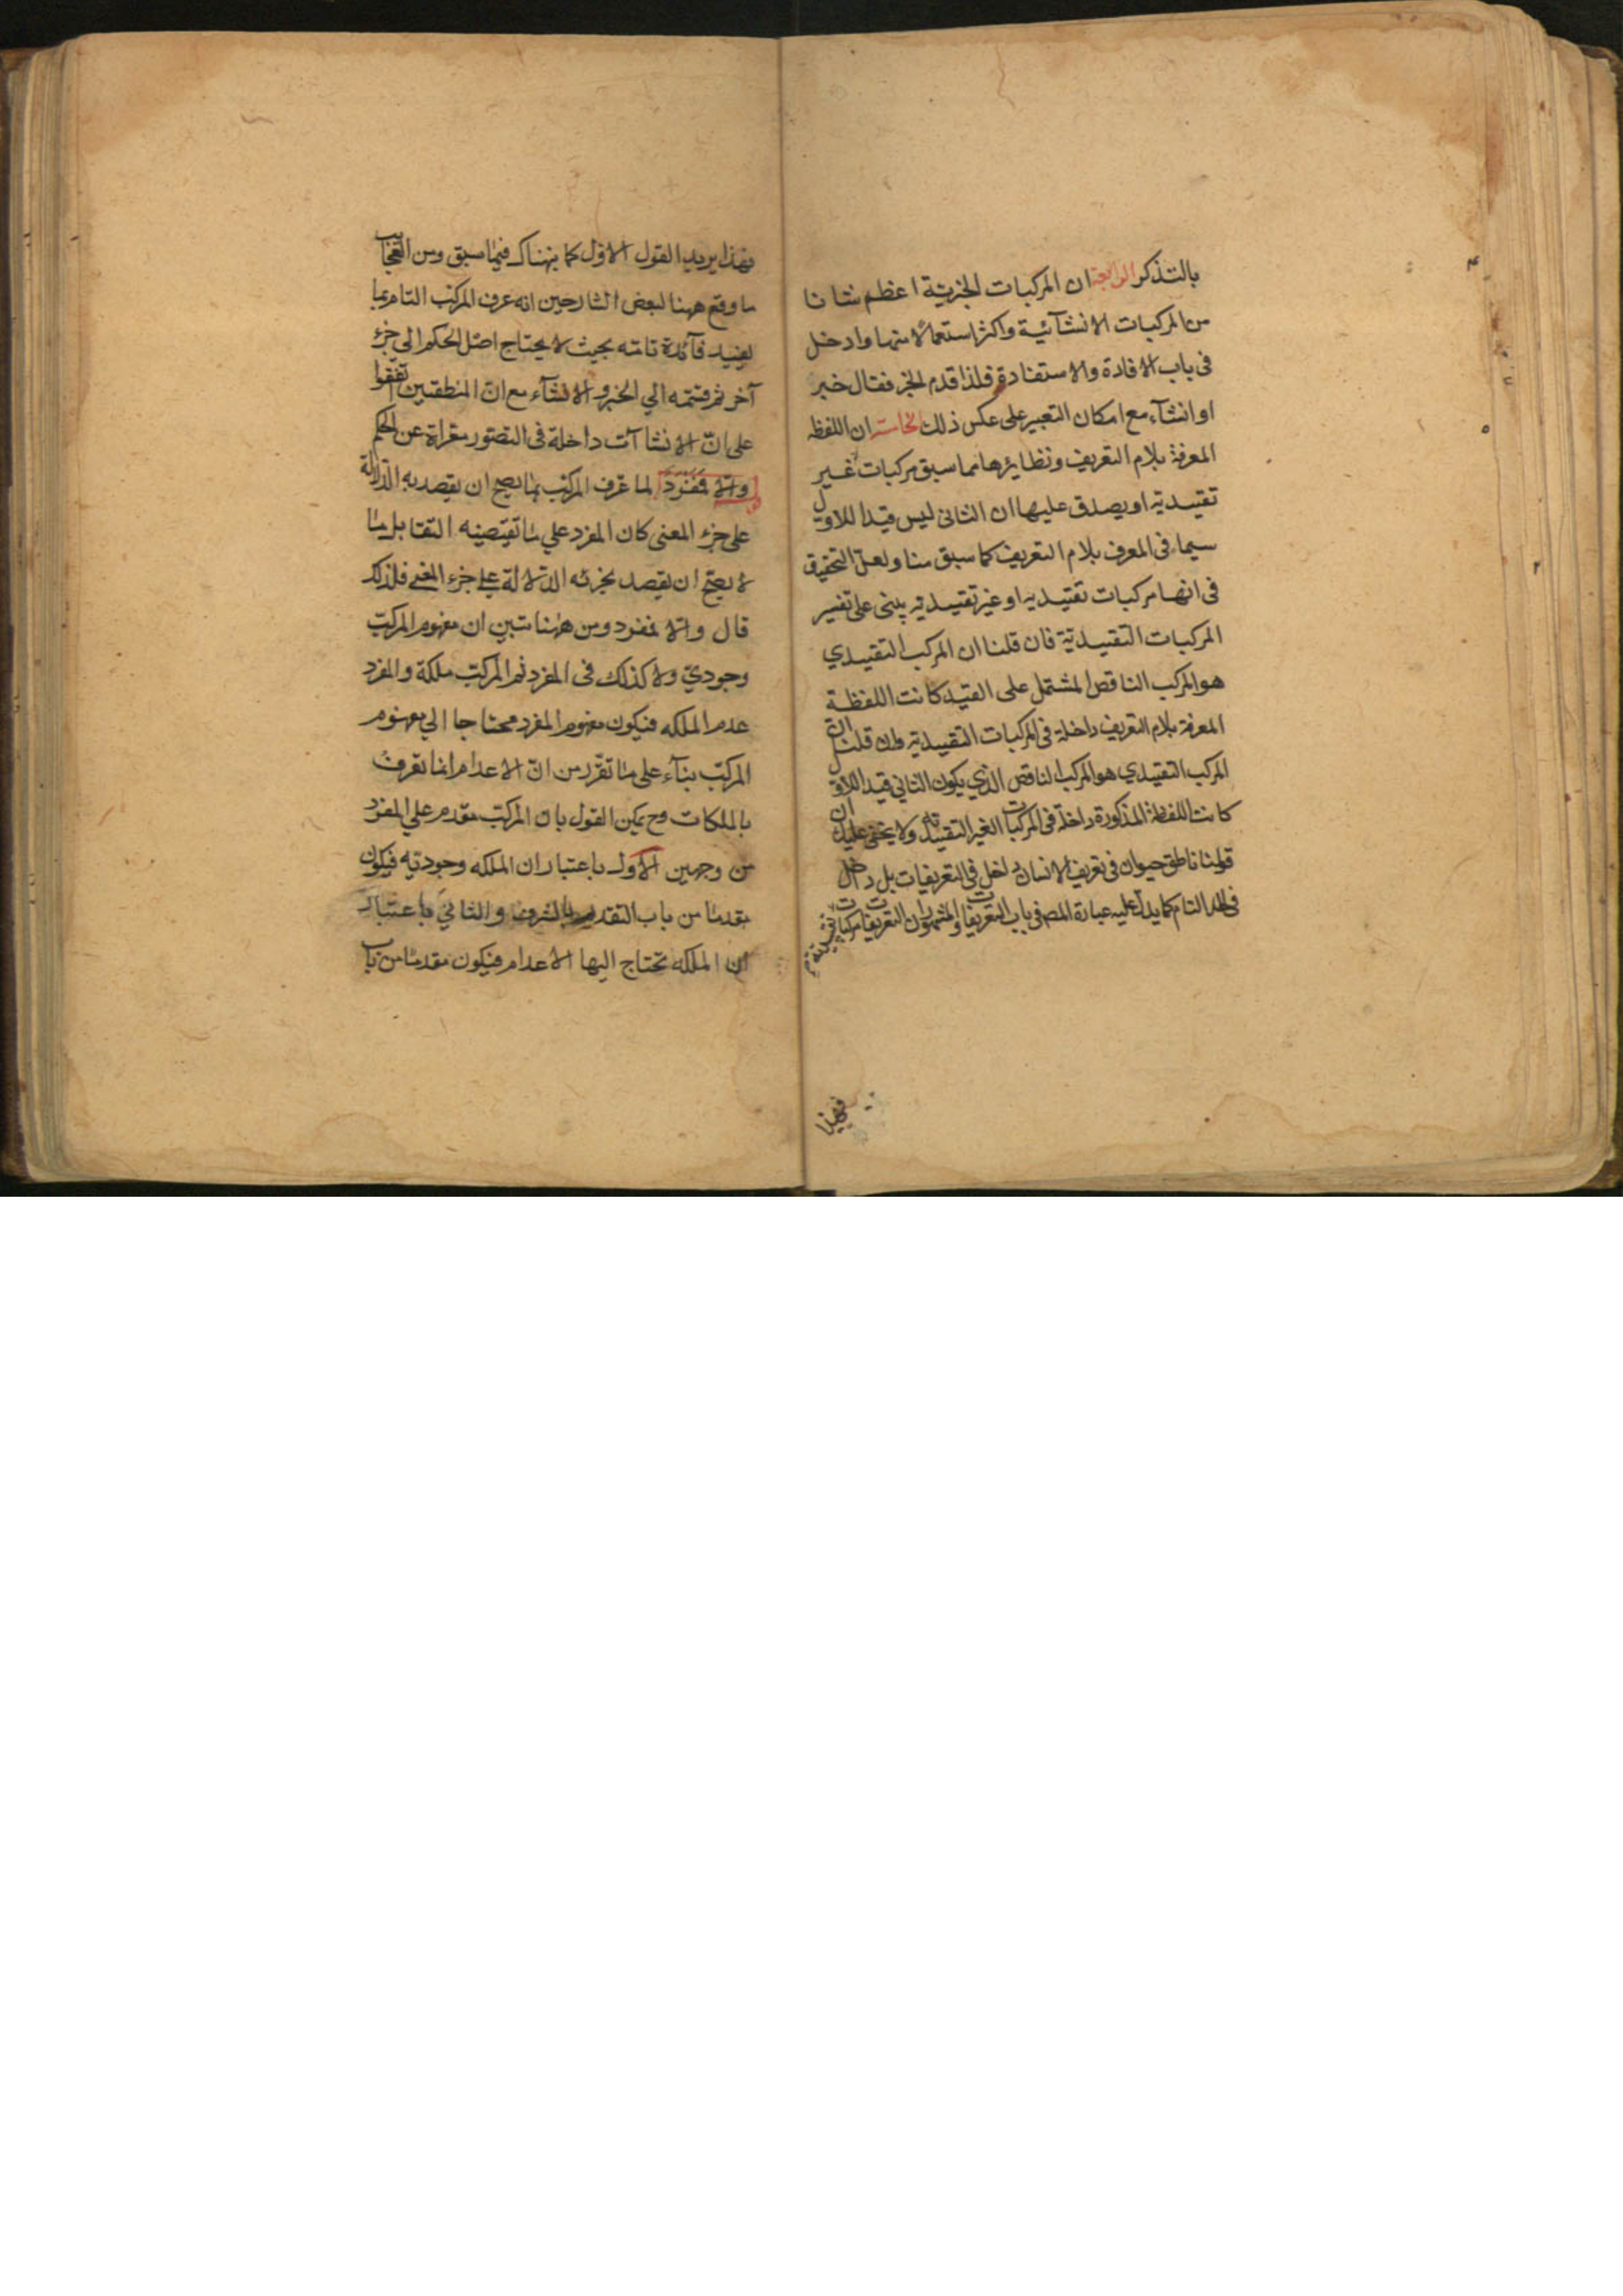 بالتذكر الرابعة ان المركبات الخبرية اعظم شانا
من المركبات الانشآئية واكثر استعمالا منها وادخل
فى باب الافادة والاستفادة فلذا قدم الخبر فقال خبر
او انشآء مع امكان التعبير على عكس ذلك الخامسة ان اللفظة
المعرفة بلام التعريف ونظايرها مما سبق مركبات غير
تقييدية او يصدق عليها ان الثانى ليس قيدا للاول
سيما فى المعرف بلام التعريف كما سبق منا ولعل التحقيق
فى انها مركبات تقييديه او غير تقييدية يبنى على تفسير
المركبات التقييدية فان قلنا ان المركب التقييدي
هو المركب الناقص المشتمل على القيد كانت اللفظة
المعرفة بلام التعريف داخلة فى المركبات التقييدية وان قلنا ان
المركب التقييدي هو المركب الناقص الذي يكون الثاني قيدا للاول
كانت اللفظة المذكورة داخلة فى المركبات الغير التقييدية ولا يخفى عليك ان
قولنا ناطق حيوان فى تعريف الانسان داخل فى التعريفات بل داخل
فى الحد التام كما يدل عليه عبارة المص فى باب التعريفات والمشهور ان التعريفات مركبات
فهذا
فهذا يريد القول الاول كما نبهناك فيما سبق ومن العجايب
ما وقع ههنا لبعض الشارحين انه عرف المركب التام بما
يفيد فآئدة تامه بحيث لا يحتاج اصل الحكم الى جزء
آخر ثم قسمه الي الخبر والانشآء مع ان المنطقيين اتفقوا
على ان الانشاآت داخلة فى التصور معراة عن الحكم
والا فمفرد لما عرف المركب بما يصح ان يقصد به الدلالة
على جزء المعنى كان المفرد علي ما تقتضيه التقابل ما
لا يصح ان يقصد بجزئه الدلالة على جزء المعنى فلذلك
قال والا فمفرد ومن ههنا تبين ان مفهوم المركب
وجودي ولا كذلك فى المفرد ثم المركب ملكة والمفرد
عدم الملكه فيكون مفهوم المفرد محتاجا الي مفهوم
المركب بنآء على ما تقرر من ان الاعدام انما تعرف
بالملكات وح يمكن القول بان المركب مقدم علي المفرد
من وجهين الاول باعتبار ان الملكه وجودية فيكون
مقدما من باب التقديم بالشرف والثاني باعتبار
ان الملكه تحتاج اليها الاعدام فيكون مقدما من باب